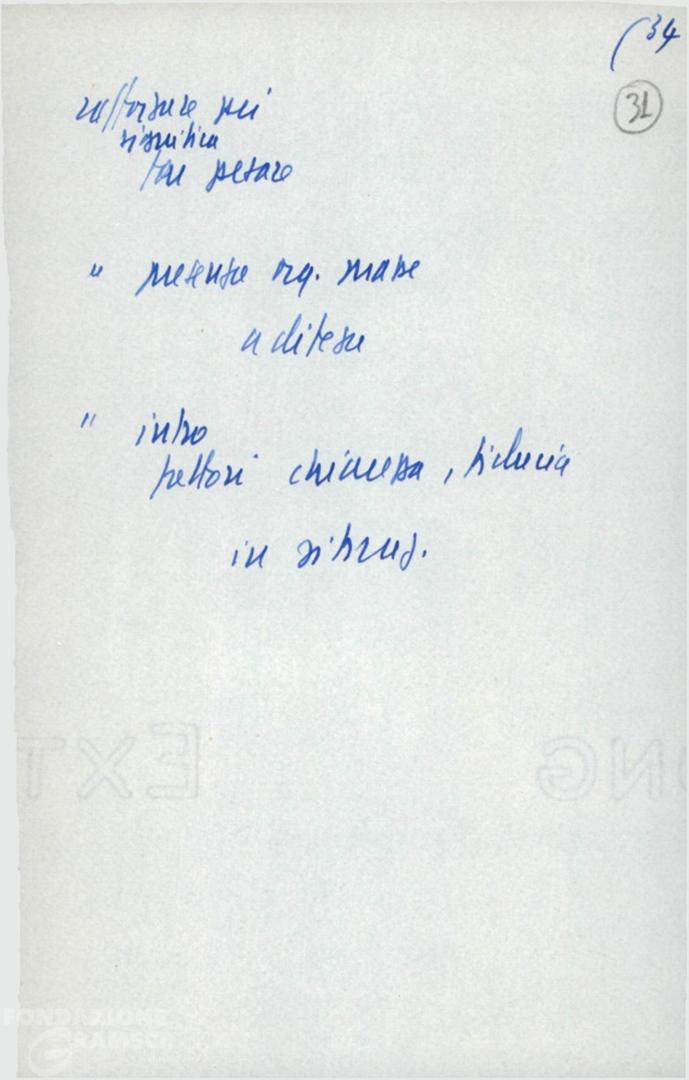 (34
31
rafforzare pci
significa
far pesare
" presenza org. masse
a difesa
" intro
fattori chiarezza, fiducia
in situaz.
EXT
ONG
FONDAZIONE
GRAMSCI